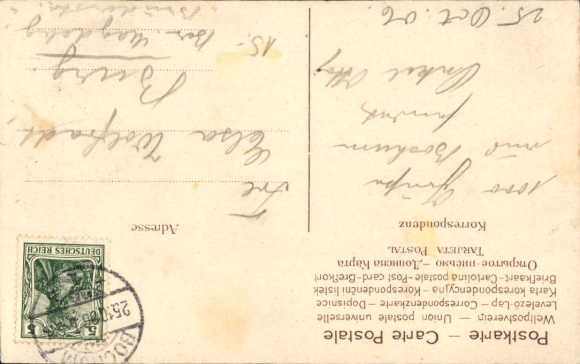 Postkarte – Carte Postale
Weltpostverein – Union postale universelle
Levelező-Lap – Correspondenzkarte – Dopisnice
Karta korespondencyjna – Korespondenční lístek
Briefkaart – Cartolina postale – Post-card – Brefkort
Открытое письмо – Дописна карта
TARJETA POSTAL
Korrespondenz
1000 Grüße
aus Bochum
Onkel Otto
25. Oct. 06.
Adresse
Frl
Elsa Wolfradt,
Burg
Bez. Magdeburg
15.
DEUTSCHES REICH
5
5
BOCHUM
25.10.06